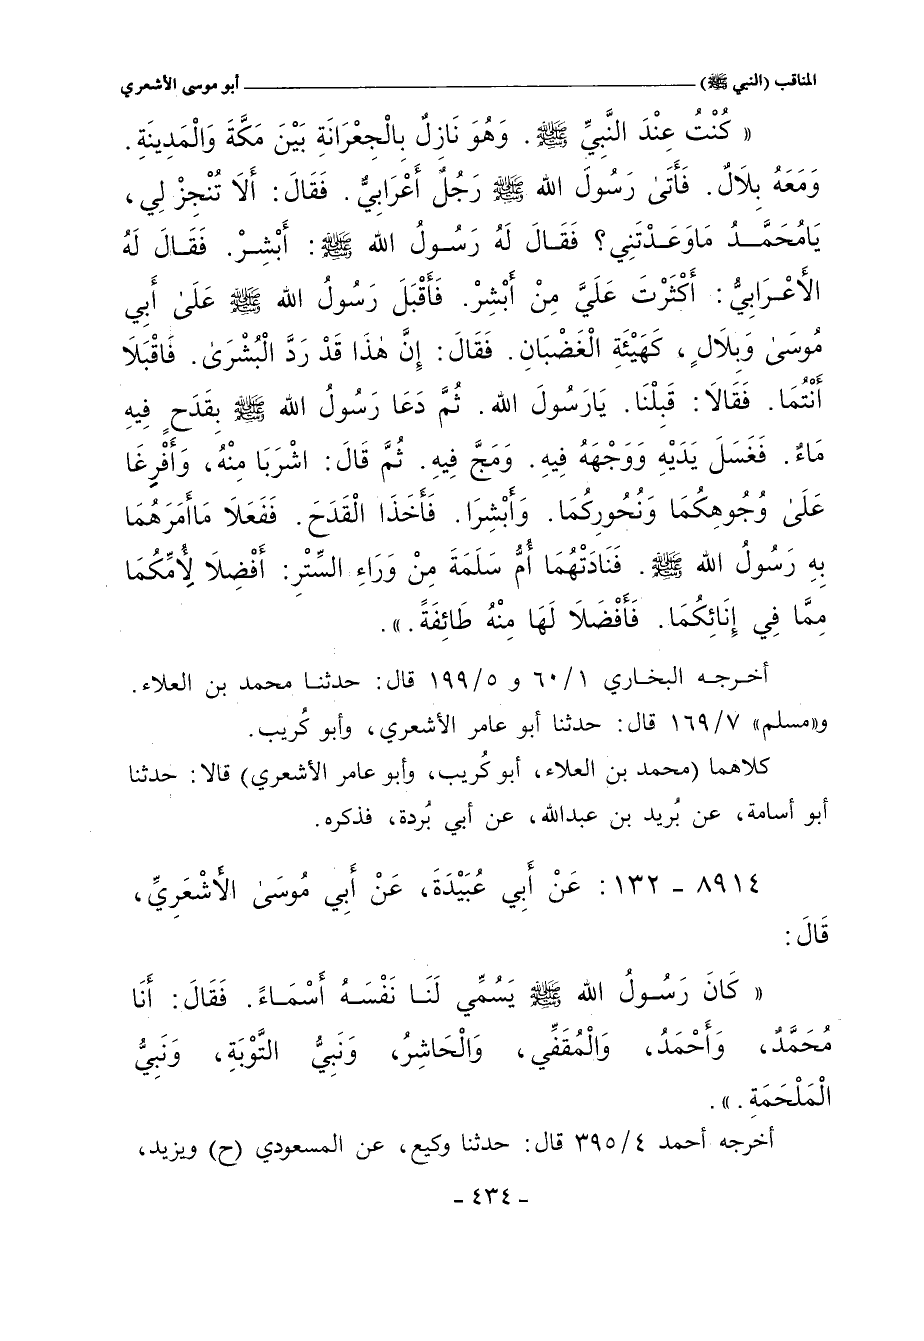 المناقب (النبي ﷺ) ــــــــــــــــــــ أبو موسى الأشعري
« كُنْتُ عِنْدَ النَّبِيِّ ﷺ . وَهُوَ نَازِلٌ بِالْجِعْرَانَةِ بَيْنَ مَكَّةَ وَالْمَدِينَةِ .
وَمَعَهُ بِلَالٌ . فَأَتَىٰ رَسُولَ الله ﷺ رَجُلٌ أَعْرَابِيٌّ . فَقَالَ : أَلَا تُنْجِزْ لِي ،
يَامُحَمَّـدُ مَاوَعَـدْتَنِي ؟ فَقَـالَ لَهُ رَسُـولُ الله ﷺ : أَبْشِـرْ . فَقَـالَ لَهُ
الأَعْـرَابِيُّ : أَكْثَرْتَ عَلَيَّ مِنْ أَبْشِرْ . فَأَقْبَلَ رَسُولُ الله ﷺ عَلَىٰ أَبِي
مُوسَىٰ وَبِلَالٍ ، كَهَيْئَةِ الْغَضْبَانِ . فَقَالَ : إِنَّ هٰذَا قَدْ رَدَّ الْبُشْرَىٰ . فَاقْبَلَا
أَنْتُمَا . فَقَالَا : قَبِلْنَا . يَارَسُولَ الله . ثُمَّ دَعَا رَسُولُ الله ﷺ بِقَدَحٍ فِيهِ
مَاءٌ . فَغَسَلَ يَدَيْهِ وَوَجْهَهُ فِيهِ . وَمَجَّ فِيهِ . ثُمَّ قَالَ : اشْرَبَا مِنْهُ ، وَأَفْرِغَا
عَلَىٰ وُجُوهِكُمَا وَنُحُورِكُمَا . وَأَبْشِرَا . فَأَخَذَا الْقَدَحَ . فَفَعَلَا مَاأَمَرَهُمَا
بِهِ رَسُولُ الله ﷺ . فَنَادَتْهُمَا أُمُّ سَلَمَةَ مِنْ وَرَاءِ السِّتْرِ : أَفْضِلَا لِأُمِّكُمَا
مِمَّا فِي إِنَائِكُمَا . فَأَفْضَلَا لَهَا مِنْهُ طَائِفَةً . » .
أخـرجـه البخـاري ١/ ٦٠ و ٥/ ١٩٩ قال : حدثنـا محمد بن العلاء .
و«مسلم» ٧/ ١٦٩ قال : حدثنا أبو عامر الأشعري ، وأبو كُريب .
كلاهما (محمد بن العلاء ، أبو كُريب ، وأبو عامر الأشعري) قالا : حدثنا
أبو أسامة ، عن بُريد بن عبدالله ، عن أبي بُردة ، فذكره .
٨٩١٤ - ١٣٢ : عَنْ أَبِي عُبَيْدَةَ ، عَنْ أَبِي مُوسَىٰ الأَشْعَرِيِّ ،
قَالَ :
« كَانَ رَسُـولُ الله ﷺ يَسُمِّي لَنَـا نَفْسَـهُ أَسْمَـاءً . فَقَالَ : أَنَا
مُحَمَّدٌ ، وَأَحْمَدُ ، وَالْمُقَفِّي ، وَالْحَاشِرُ ، وَنَبِيُّ التَّوْبَةِ ، وَنَبِيُّ
الْمَلْحَمَةِ . » .
أخرجه أحمد ٤/ ٣٩٥ قال : حدثنا وكيع ، عن المسعودي (ح) ويزيد ،
- ٤٣٤ -